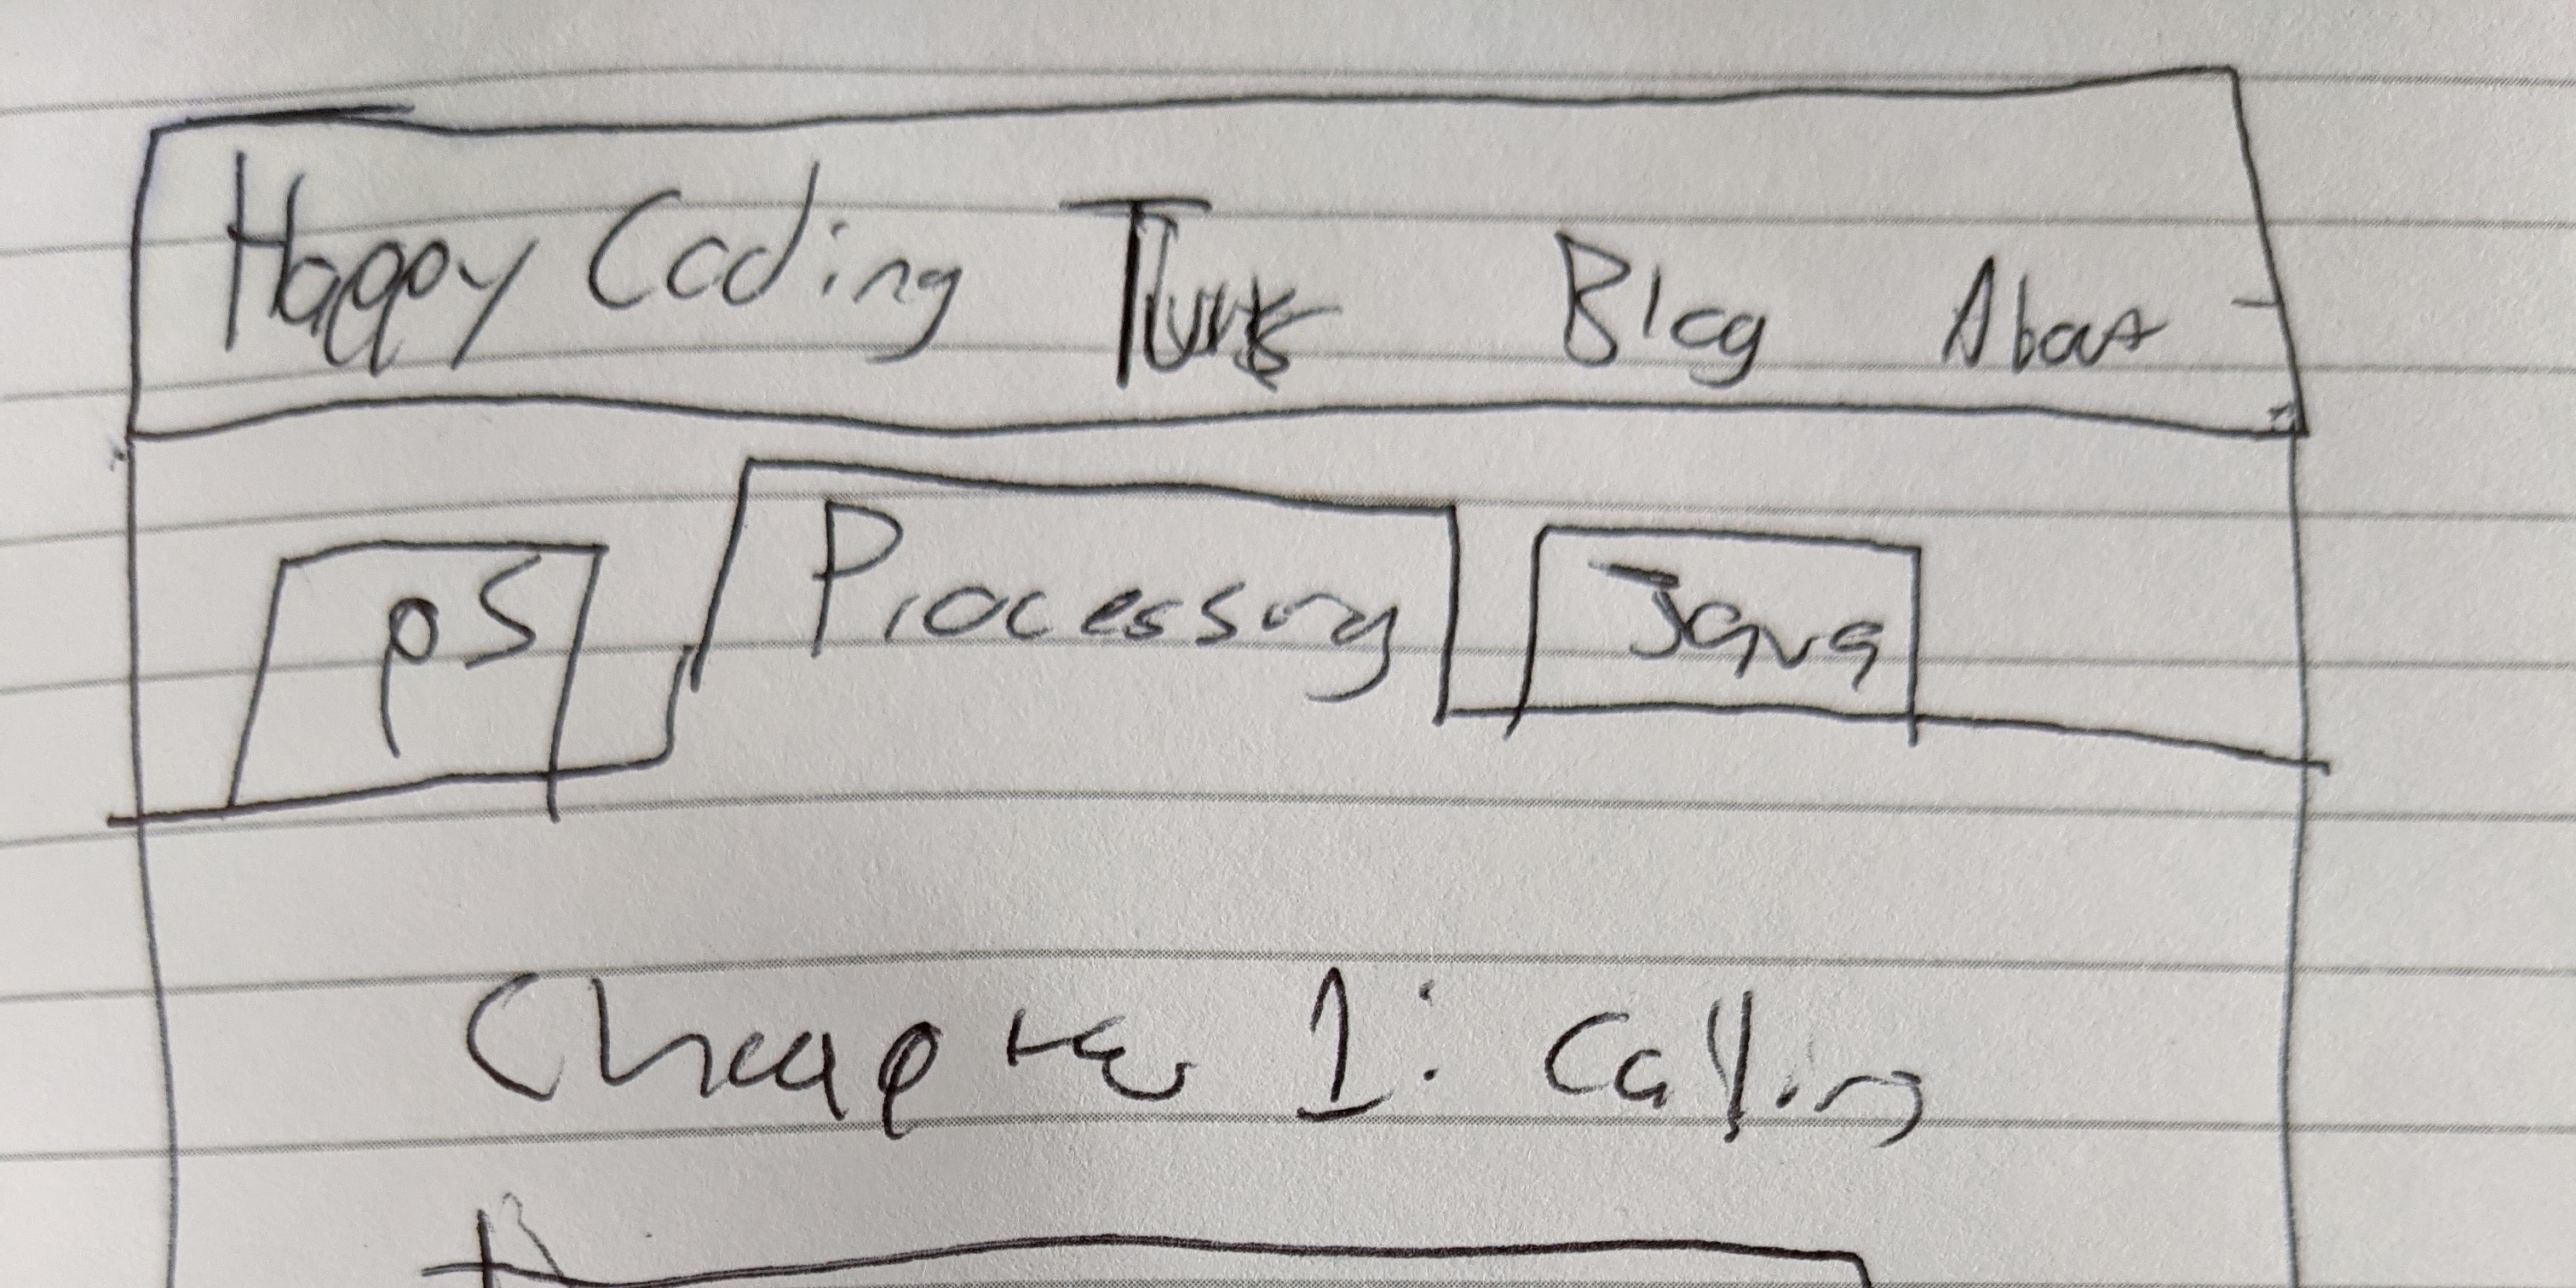 Happy Coding Tuts Blog About
p5 Processing Java
Chapter 1: Calling